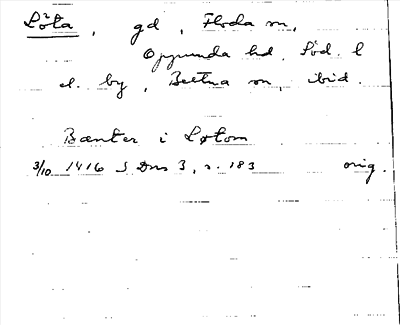 Löta, gd, Floda sn,
Oppunda hd, Söd. l
el. by, Bettna sn, ibid.
Bænter i Løtom
3/10 1416 SDns 3, s. 183 orig.